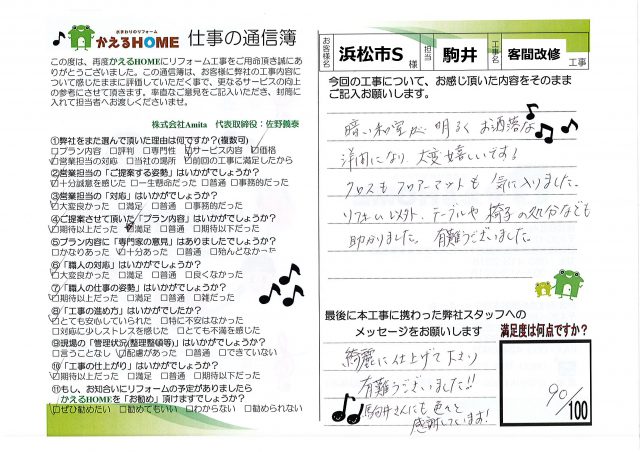 水まわりのリフォーム
かえるHOME
仕事の通信簿
この度は、再度かえるHOMEにリフォーム工事をご用命頂き誠にあ
りがとうございました。この通信簿は、お客様に弊社の工事内容に
ついて感じたままに評価していただく事で、更なるサービスの向上
の参考にさせて頂きます。率直なご意見をご記入いただき、封筒に
入れて担当者へお渡しくださいませ。
株式会社Amita 代表取締役：佐野義泰
①弊社をまた選んで頂いた理由は何ですか?(複数可)
□プラン内容 □評判 □専門性 ☑サービス内容 ☑価格
☑営業担当の対応 □当社の場所 ☑前回の工事に満足したから
②営業担当の「ご提案する姿勢」はいかがでしょうか?
☑十分誠意を感じた □一生懸命だった □普通 □事務的だった
③営業担当の「対応」はいかがでしょうか?
☑大変良かった □満足 □普通 □事務的だった
④ご提案させて頂いた「プラン内容」はいかがでしょうか?
□期待以上だった ☑満足 □普通 □期待以下だった
⑤プラン内容に「専門家の意見」はありましたでしょうか?
□かなりあった ☑十分あった □普通 □殆んどなかった
⑥「職人の対応」はいかがでしょうか?
☑大変良かった □満足 □普通 □良くなかった
⑦「職人の仕事の姿勢」はいかがでしょうか?
☑期待以上だった □満足 □普通 □雑だった
⑧「工事の進め方」はいかがでしたか?
☑とても安心していられた □特に不安はなかった
□対応に少しストレスを感じた □とても不満を感じた
⑨現場の「管理状況(整理整頓等)」はいかがでしょうか?
□言うことなし ☑配慮があった □できていない
⑩「工事の仕上がり」はいかがでしょうか?
☑期待以上だった □満足 □普通 □期待以下だった
⑪もし、お知合いにリフォームの予定がありましたら
かえるHOMEを「お勧め」頂けますでしょうか?
☑ぜひ勧めたい □勧めてもいい □わからない □勧められない
お客様名 浜松市S 様 担当 駒井 工事名 客間改修 工事
今回の工事について、お感じ頂いた内容をそのまま
ご記入お願いします。
暗い和室が 明るく お洒落な
洋間になり 大変嬉しいです。
クロスもフロアーマットも 気に入りました。
リフォーム以外、テーブルや椅子の処分なども
助かりました。有難うございました。
最後に本工事に携わった弊社スタッフへの
メッセージをお願いします
綺麗に仕上げて下さり
有難うございました!!
駒井さんにも色々と
感謝しています!
満足度は何点ですか?
90/100